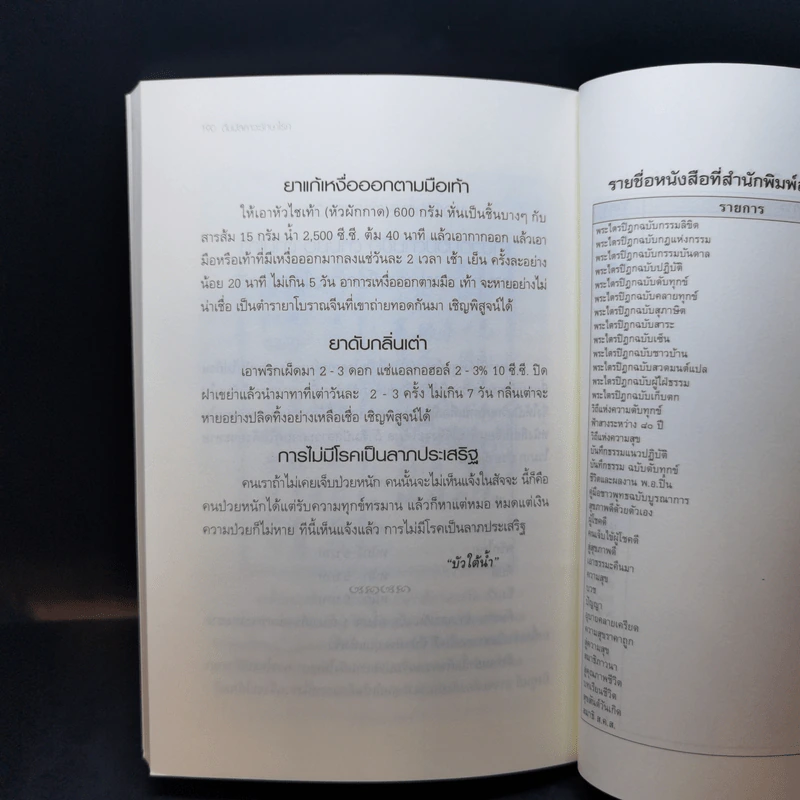 ยาแก้เหงื่อออกตามมือเท้า
ให้เอาหัวไชเท้า (หัวผักกาด) 600 กรัม หั่นเป็นชิ้นบางๆ กับ
สารส้ม 15 กรัม น้ำ 2,500 ซี.ซี. ต้ม 40 นาที แล้วเอากากออก แล้วเอา
มือหรือเท้าที่มีเหงื่อออกมากลงแช่วันละ 2 เวลา เช้า เย็น ครั้งละอย่าง
น้อย 20 นาที ไม่เกิน 5 วัน อาการเหงื่อออกตามมือ เท้า จะหายอย่างไม่
น่าเชื่อ เป็นตำรายาโบราณจีนที่เขาถ่ายทอดกันมา เชิญพิสูจน์ได้
ยาดับกลิ่นเต่า
เอาพริกเผ็ดมา 2 - 3 ดอก แช่แอลกอฮอล์ 2 - 3% 10 ซี.ซี. ปิด
ฝาเขย่าแล้วนำมาทาที่เต่าวันละ 2 - 3 ครั้ง ไม่เกิน 7 วัน กลิ่นเต่าจะ
หายอย่างปลิดทิ้งอย่างเหลือเชื่อ เชิญพิสูจน์ได้
การไม่มีโรคเป็นลาภประเสริฐ
คนเราถ้าไม่เคยเจ็บป่วยหนัก คนนั้นจะไม่เห็นแจ้งในสัจจะ นี้ก็คือ
คนป่วยหนักได้แต่รับความทุกข์ทรมาน แล้วก็หาแต่หมอ หมดแต่เงิน
ความป่วยก็ไม่หาย ทีนี้เห็นแจ้งแล้ว การไม่มีโรคเป็นลาภประเสริฐ
"บัวใต้น้ำ"
รายชื่อหนังสือที่สำนักพิมพ์
รายการ
พระไตรปิฎกฉบับกรรมลิขิต
พระไตรปิฎกฉบับกฎแห่งกรรม
พระไตรปิฎกฉบับกรรมบันดาล
พระไตรปิฎกฉบับปฏิบัติ
พระไตรปิฎกฉบับดับทุกข์
พระไตรปิฎกฉบับคลายทุกข์
พระไตรปิฎกฉบับสุภาษิต
พระไตรปิฎกฉบับสาระ
พระไตรปิฎกฉบับเซ็น
พระไตรปิฎกฉบับชาวบ้าน
พระไตรปิฎกฉบับสวดมนต์แปล
พระไตรปิฎกฉบับผู้ใฝ่ธรรม
พระไตรปิฎกฉบับเก็บตก
วิถีแห่งความดับทุกข์
ฟ้าสางระหว่าง ๕๐ ปี
วิถีแห่งความสุข
บันทึกธรรมแนวปฏิบัติ
บันทึกธรรม ฉบับดับทุกข์
ชีวิตและผลงาน พ.อ.ปิ่น
คู่มือชาวพุทธฉบับบูรณาการ
สุขภาพดีด้วยตัวเอง
ผู้โชคดี
คนเจ็บไข้ผู้โชคดี
สู่สุขภาพดี
เอาธรรมะคืนมา
ความสุข
บวช
ปัญญา
อุบายคลายเครียด
ความสุขราคาถูก
สู่ความสุข
สมาธิภาวนา
สู่คุณภาพชีวิต
บทเรียนชีวิต
สุขสันต์วันเกิด
สมาธิ ส.ค.ส.